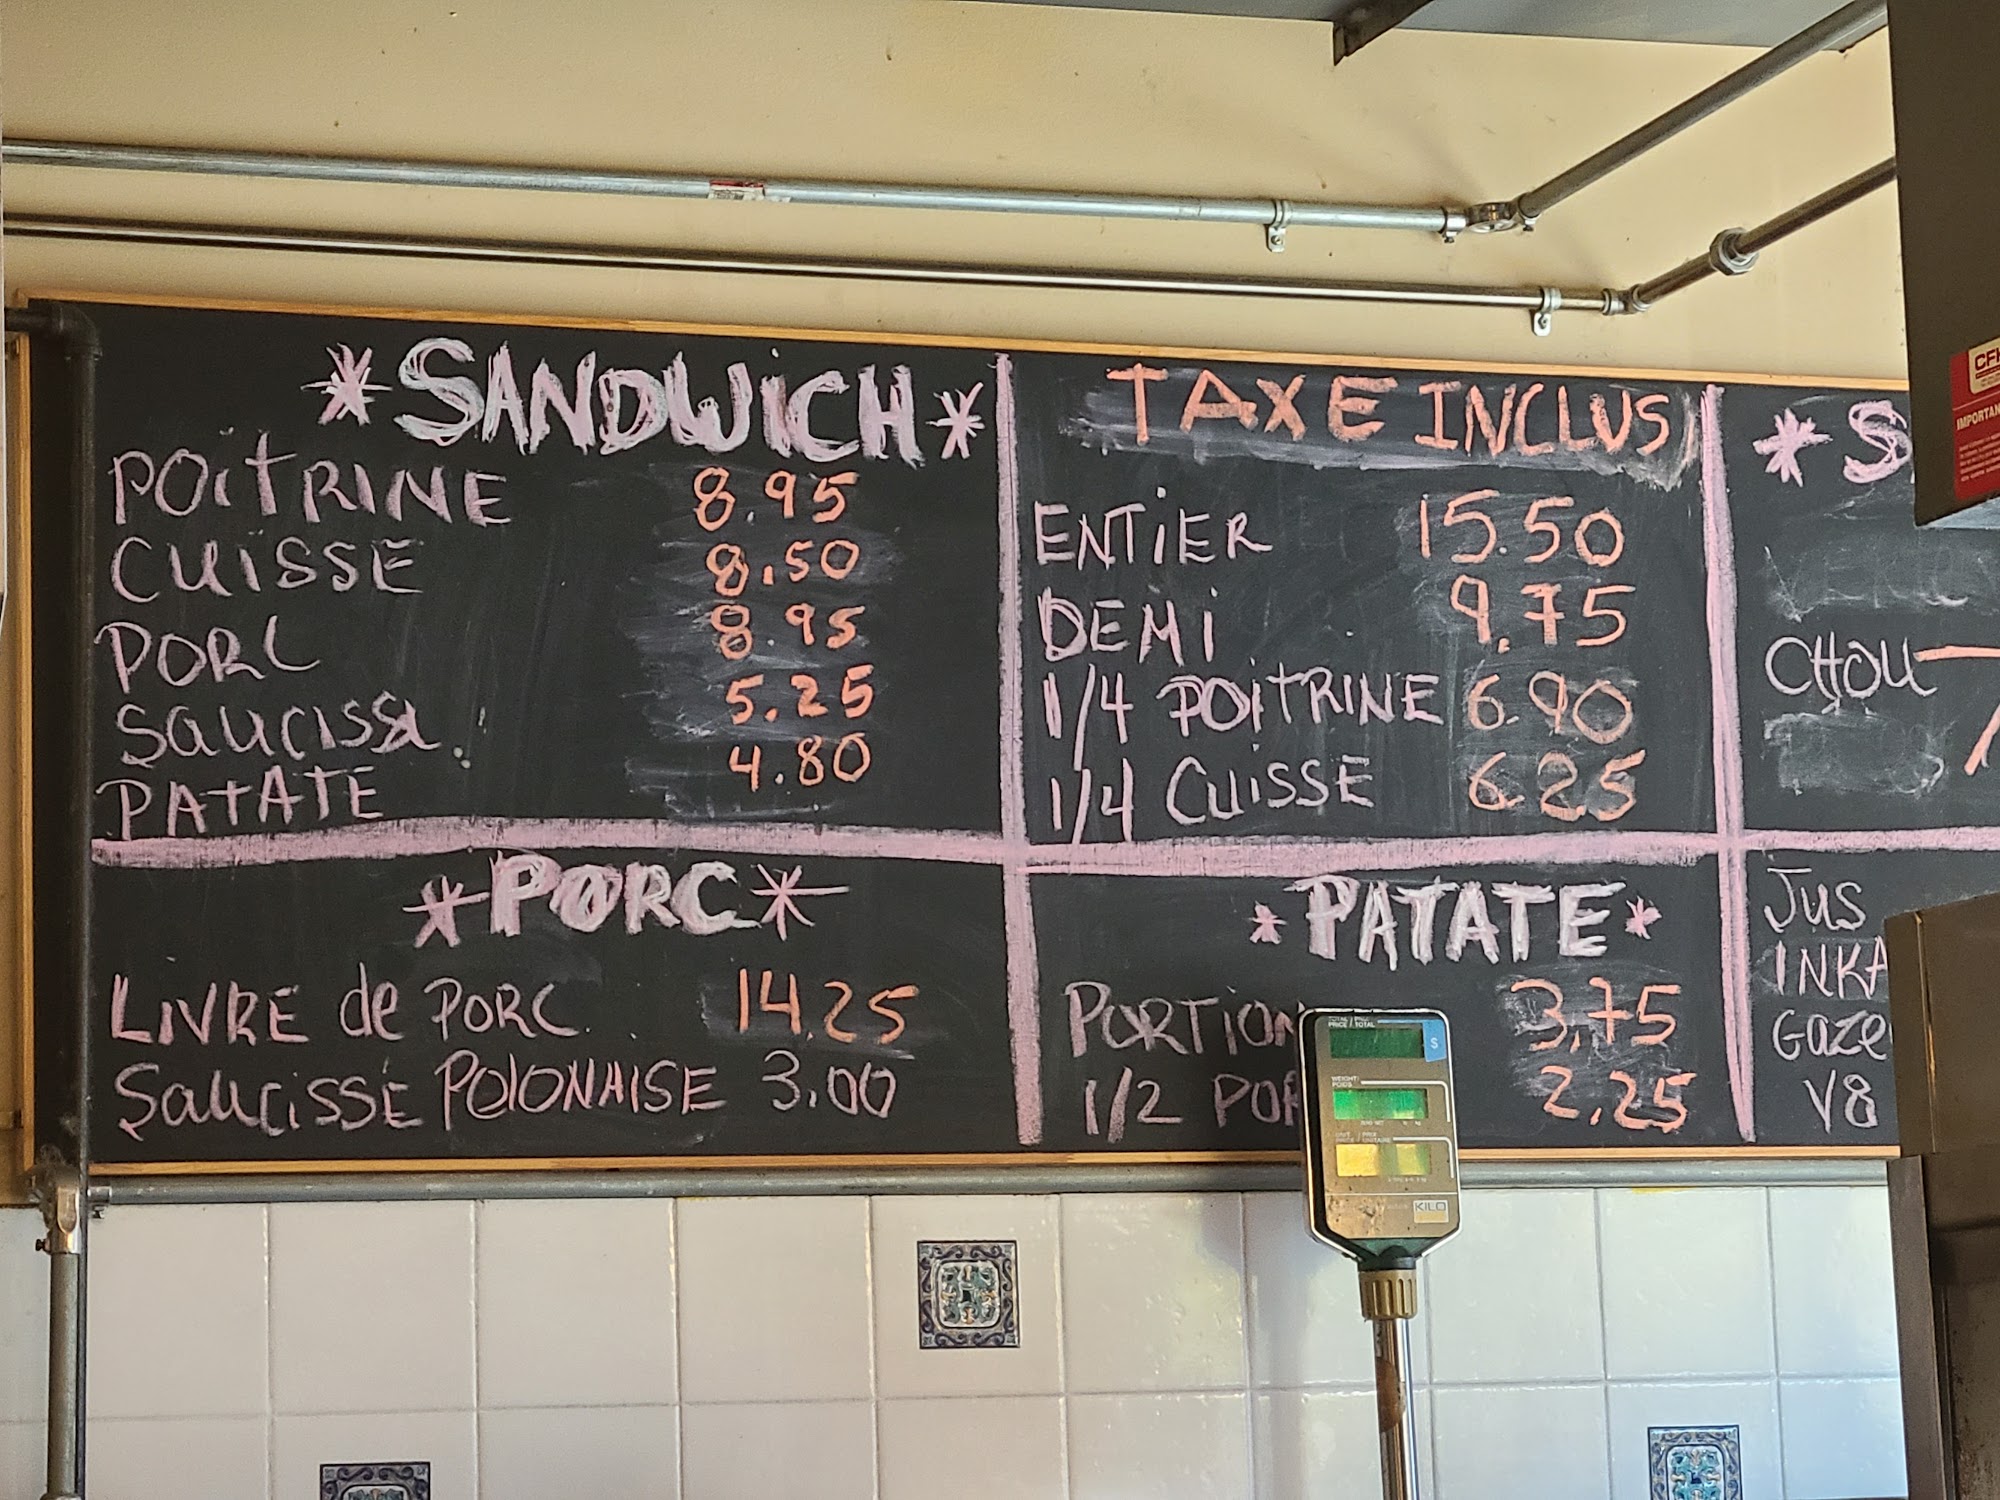 *SANDWICH*
POITRINE 8.95
CUISSE 8.50
PORC 8.95
SAUCISSE 5.25
PATATE 4.80
TAXE INCLUS
ENTIER 15.50
DEMI 9.75
1/4 POITRINE 6.90
1/4 CUISSE 6.25
* S
CHOU 7
*PORC*
LIVRE de PORC 14.25
SAUCISSE POLONAISE 3.00
*PATATE*
PORTION 3,75
1/2 POR 2.25
JUS
INKA
GAZE
V8
KILO
CFH
IMPORTAN